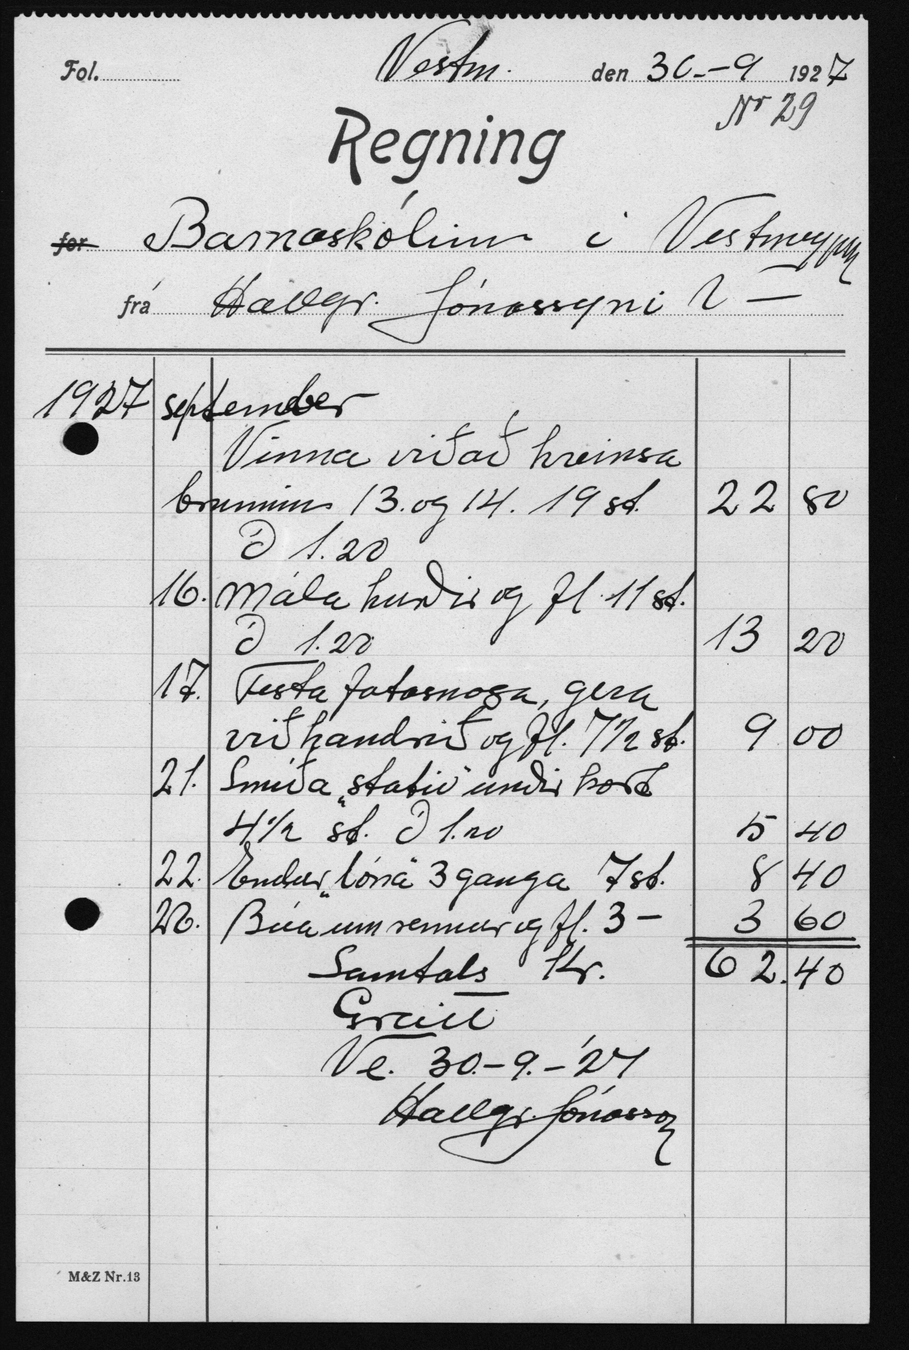 Fol. Vestm. den 30.-9 1927
Nr 29
Regning
for Barnaskólinn í Vestmeyjum
frá Hallgr. Jónassyni
1927 september
Vinna við að hreinsa
brunninn 13. og 14. 19 st. 22 80
á 1.20
16. Mála hurðir og fl. 11 st.
á 1.20 13 20
17. Festa fatasnaga, gera
við handrið og fl. 7 1/2 st. 9 00
21. Smíða „stativ" undir kort
4 1/2 st. á 1.20 5 40
22. Endur „lóna" 3 ganga 7 st. 8 40
Búa um rennur og fl. 3 - 3 60
Samtals Kr. 62.40
Greitt
Ve. 30.-9.-'27
Hallgr. Jónasson
M&Z Nr.13